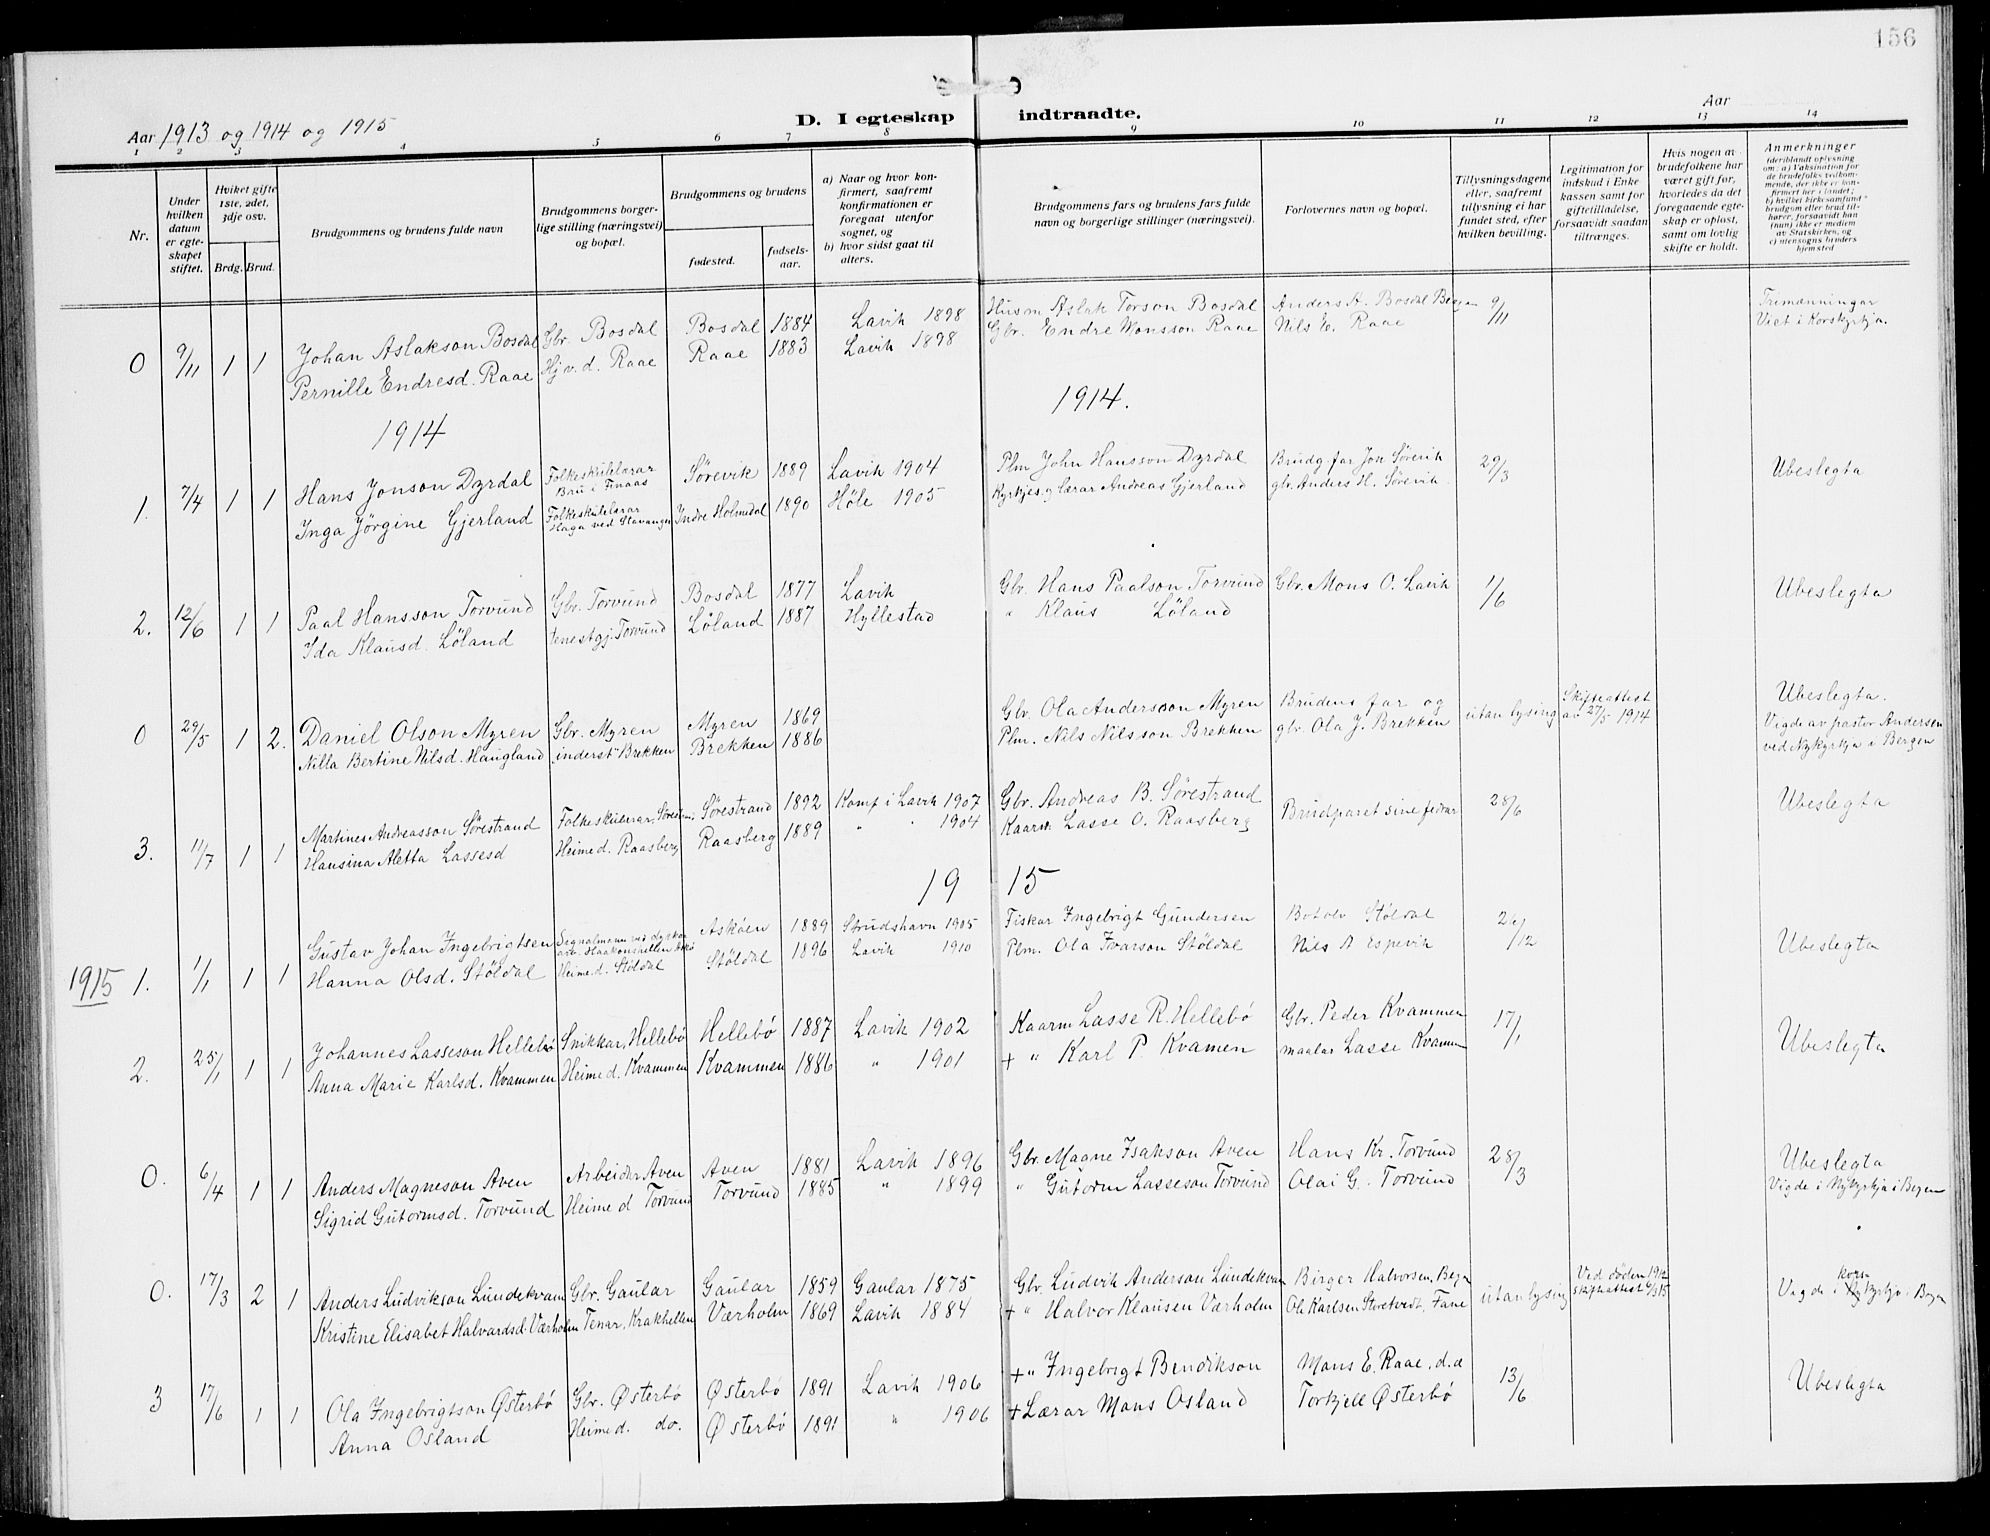 156
D. I egteskap indtraadte.
Aar 1913 og 1914 og 1915
Aar
1 2 3 4 5 6 7 8 9 10 11 12 13 14
Nr.
Under hvilken datum er egteskapet stiftet.
Hvilket gifte 1ste, 2det, 3dje osv.
Brdg. Brud.
Brudgommens og brudens fulde navn
Brudgommens borgerlige stilling (næringsvei) og bopæl.
Brudgommens og brudens
fødested.
fødsels-aar.
a) Naar og hvor konfirmert, saafremt konfirmationen er foregaat utenfor sognet, og
b) hvor sidst gaat til alters.
Brudgommens fars og brudens fars fulde navn og borgerlige stillinger (næringsvei).
Forlovernes navn og bopæl.
Tillysningsdagene eller, saafremt tillysning ei har fundet sted, efter hvilken bevilling.
Legitimation for indskud i Enkekassen samt for giftetilladelse, forsaavidt saadan tiltrænges.
Hvis nogen av brudefolkene har været gift før, hvorledes da det foregaaende egteskap er opløst, samt om lovlig skifte er holdt.
Anmerkninger (deriblandt oplysning om: a) Vaksination for de brudefolks vedkommende, der ikke er konfirmert her i landet; b) hvilket kirkesamfund brudgom eller brud tilhører, forsaavidt han (hun) ikke er medlem av Statskirken, og c) utensogns bruders hjemsted
0 9/11 1 1 Johan Aslakson Bosdal Gbr. Bosdal Bosdal 1884 Lavik 1898 Husm Aslak Torson Bosdal Anders A. Bosdal Bergen 9/11 Trimænningar
Pernille Endresd. Raae Hj v. d. Raae Raae 1883 Lavik 1898 Gbr. Endre Monsson Raae Nils E. Raae Viet i Korskyrkja.
1914 1914.
1. 7/4 1 1 Hans Jonson Dyrdal Folkeskulelærar Bru i Finaas Sörevik 1889 Lavik 1904 Plm John Hansson Dyrdal Brudg. far Jon Sörevik 29/3 Ubeslegta
Inga Jörgine Gjerland Folkeskulelærar Haga ved Stavanger Indre Holmedal 1890 Höle 1905 Kyrkjes. og lærar Andreas Gjerland gbr. Anders H. Sörevik.
2. 12/6 1 1 Paal Hansson Torvund Gbr. Torvund Bosdal 1877 Lavik Gbr. Hans Paalson Torvund Gbr. Mons O. Lavik 1/6 Ubeslegta
Ida Klausd. Löland tenestgj. Torvund Löland 1887 Hyllestad " Klaus Löland
0 29/5 1 2. Daniel Olson Myren Gbr. Myren Myren 1869 Gbr. Ola Andersson Myren Brudens far og utan lysing Skifteattest av 27/5 1914 Ubeslegta.
Nilla Bertine Nilsd. Haugland inderst Brekken Brekken 1886 Plm. Nils Nilsson Brekken gbr. Ola J. Brekken Vigde av pastor Andersen ved Nykyrkja i Bergen
3. 11/7 1 1 Martines Andreasson Sørestrand Folkeskulelærar, Sørestr. Sørestrand 1892 Konf i Lavik 1907 Gbr. Andreas B. Sørestrand Brudparet sine fedrar 28/6 Ubeslegta
Hansina Aletta Lassesd Heimed. Raasberg Raasberg 1889 " " 1904 Kaarm. Lasse O. Raasberg
19 15
1915 1. 1/1 1 1 Gustav Johan Ingebrigtsen Signalmann ved Haakonshellen Askøen 1889 Strudshavn 1905 Fiskar Ingebrigt Gundersen Botolv Stöldal 26/12 Ubeslegta
Hanna Olsd. Stöldal Heimed. Stöldal Stöldal 1896 Lavik 1910 Plm. Ola Ivarson Stöldal Nils A Espevik
2. 25/1 1 1 Johannes Lasseson Hellebø Snikkar, Hellebø Hellebø 1887 Lavik 1902 Kaarm Lasse R. Hellebø Gbr. Peder Kvammen 17/1 Ubeslegta
Anna Marie Karlsd. Kvammen Heimed. Kvammen Kvammen 1886 " 1901 + " Karl P. Kvamen maalar Lasse Kvammen
0. 6/4 1 1 Anders Magneson Aven Arbeider Aven Aven 1881 Lavik 1896 Gbr. Magne Isakson Aven Hans Kr. Torvund 28/3 Ubeslegta
Sigrid Gutormsd. Torvund Heimed Torvund Torvund 1885 " 1899 " Gutorm Lasseson Torvund Olai G. Torvund Vigde i Nykyrkja i Bergen
0. 17/3 2 1 Anders Ludvikson Lundekvam Gbr. Gaular Gaular 1859 Gaular 1875 Gbr. Ludvik Anderson Lundekvam Birger Halvorsen, Bergen utan lysing Ved døden 1912 skifteattest Vigde i korskyrkja i Bergen
Kristine Elisabet Halvardsd. Værholm Tenar, Krakhellen Værholm 1869 Lavik 1884 + " Halvor Klausen Værholm Ole Karlsen Storetvedt, Fane
3 17/6 1 1 Ola Ingebrigtson Østerbø Gbr. Østerbø Østerbø 1891 Lavik 1906 + " Ingebrigt Bendikson Mons E. Raae, d.a 13/6 Ubeslegta
Anna Osland Heimed. do. Østerbø 1891 " 1906 + Lærar Mons Osland Torkjell Østerbø